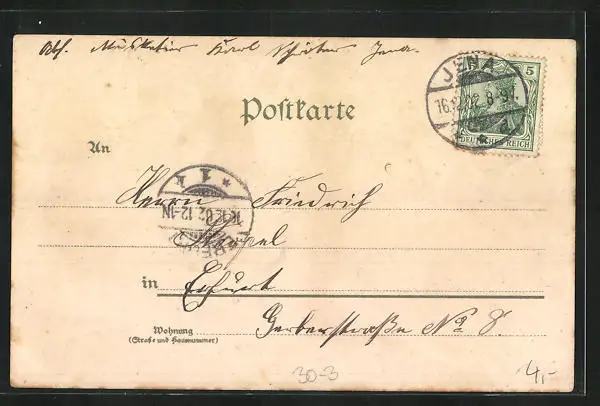 Abs. Musketier Karl Schröter Jena.
JENA
16.12.02. 8-9V.
5
DEUTSCHES REICH
Postkarte
An
Herrn Friedrich
16.12.02 12-1N
in Erfurt
Wohnung
(Straße und Hausnummer)
Gerberstraße No 8.
30-3
4,-